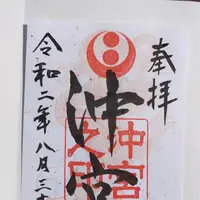 奉拝
沖宮
沖宮之印
令和二年八月三